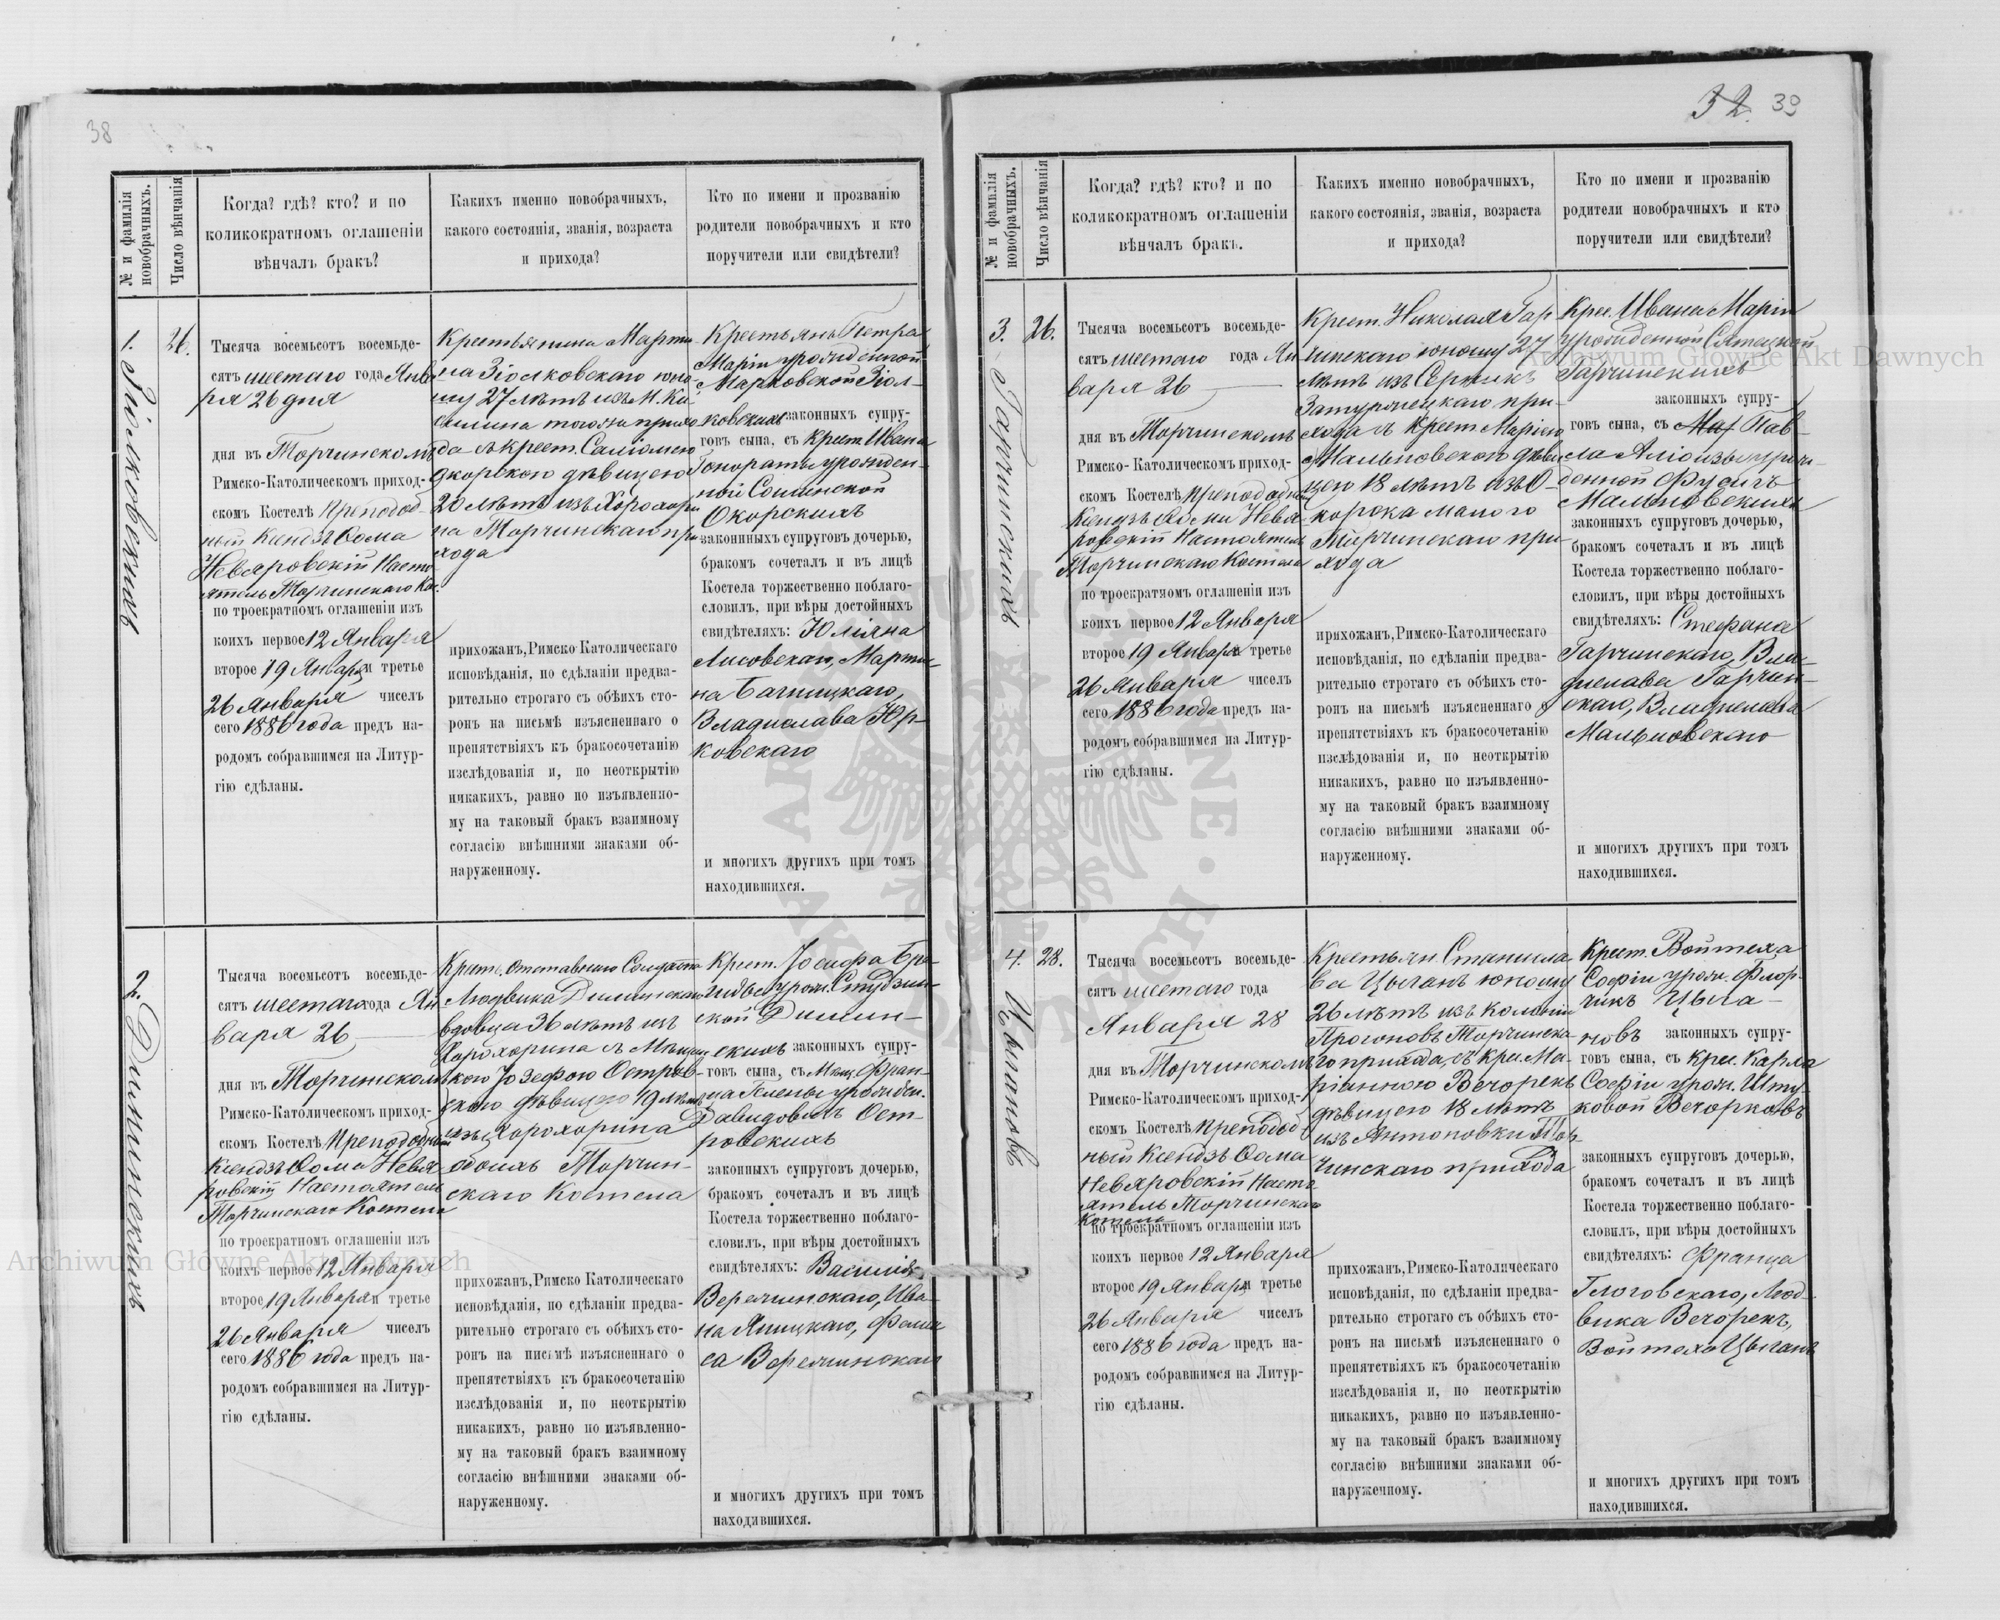 38
№ и фамилія новобрачныхъ.
Число вѣнчанія
Когда? гдѣ? кто? и по
коликократномъ оглашеніи
вѣнчалъ бракъ?
Какихъ именно новобрачныхъ,
какого состоянія, званія, возраста
и прихода?
Кто по имени и прозванію
родители новобрачныхъ и кто
поручители или свидѣтели?
1. Зіолковскихъ
26.
Тысяча восемьсотъ восемьде-
сятъ шестаго года Янва
ря 26 дня
дня въ Торчинскомъ
Римско-Католическомъ приход-
скомъ Костелѣ Преподоб
ный Ксендзъ Ѳома
Невяровскій Насто
ятель Торчинскаго Ко.
по троекратномъ оглашеніи изъ
коихъ первое 12 Января
второе 19 Января и третье
26 Января чиселъ
сего 1886 года предъ на-
родомъ собравшимся на Литур-
гію сдѣланы.
Крестьянина Марти
на Зіолковскаго юно-
шу 27 лѣтъ изъ М. Ки
селина тогожъ прихо
да съ крест. Саломею
Окорскою дѣвицею
20 лѣтъ изъ Хорохори
на Торчинскаго при
хода
прихожанъ, Римско-Католическаго
исповѣданія, по сдѣланіи предва-
рительно строгаго съ обѣихъ сто-
ронъ на письмѣ изъясненнаго о
препятствіяхъ къ бракосочетанію
изслѣдованія и, по неоткрытію
никакихъ, равно по изъявленно-
му на таковый бракъ взаимному
согласію внѣшними знаками об-
наруженному.
Крестьянъ Петра
Маріи урожденной
Марковской Зіол-
ковскихъ законныхъ супру-
говъ сына, съ Крест. Ивана
Гонораты урожден-
ной Сошинской
Окорскихъ
законныхъ супруговъ дочерью,
бракомъ сочеталъ и въ лицѣ
Костела торжественно поблаго-
словилъ, при вѣры достойныхъ
свидѣтеляхъ: Юліяна
Лисовскаго, Марти-
на Бачицкаго,
Владислава Юр-
ковскаго
и многихъ другихъ при томъ
находившихся.
2. Диминскихъ
Тысяча восемьсотъ восемьде-
сятъ шестаго года Ян
варя 26
дня въ Торчинскомъ
Римско-Католическомъ приход-
скомъ Костелѣ Преподобный
Ксендзъ Ѳома Невя
ровскій Настоятель
Торчинскаго Костела
по троекратномъ оглашеніи изъ
коихъ первое 12 Января
второе 19 Января и третье
26 Января чиселъ
сего 1886 года предъ на-
родомъ собравшимся на Литур-
гію сдѣланы.
Крест. отставнаго Солдата
Людвика Диминскаго
вдовца 36 лѣтъ изъ
Хорохорина съ Мѣщан
кою Іозефою Остров-
скою дѣвицею 19 лѣтъ
изъ Хорохорина
обоихъ Торчин-
скаго Костела
прихожанъ, Римско Католическаго
исповѣданія, по сдѣланіи предва-
рительно строгаго съ обѣихъ сто-
ронъ на письмѣ изъясненнаго о
препятствіяхъ къ бракосочетанію
изслѣдованія и, по неоткрытію
никакихъ, равно по изъявленно-
му на таковый бракъ взаимному
согласію внѣшними знаками об-
наруженному.
Крест. Іосифа Бри-
гиды урож. Студзин-
ской Димин-
скихъ законныхъ супру-
говъ сына, съ Мѣщ. Фран-
ца Гелены урожден.
Давидовичъ Ост-
ровскихъ
законныхъ супруговъ дочерью,
бракомъ сочеталъ и въ лицѣ
Костела торжественно поблаго-
словилъ, при вѣры достойныхъ
свидѣтеляхъ: Василія
Верещинскаго, Ива-
на Яницкаго,
Верещинскаго
и многихъ другихъ при томъ
находившихся.
32. 39
№ и фамилія новобрачныхъ.
Число вѣнчанія
Когда? гдѣ? кто? и по
коликократномъ оглашеніи
вѣнчалъ бракъ.
Какихъ именно новобрачныхъ,
какого состоянія, званія, возраста
и прихода?
Кто по имени и прозванію
родители новобрачныхъ и кто
поручители или свидѣтели?
3. Гарчинскихъ
26.
Тысяча восемьсотъ восемьде-
сятъ шестаго года Ян
варя 26
дня въ Торчинскомъ
Римско-Католическомъ приход-
скомъ Костелѣ Преподобный
Ксендзъ Ѳома Невя-
ровскій Настоятель
Торчинскаго Костела
по троекратномъ оглашеніи изъ
коихъ первое 12 Января
второе 19 Января и третье
26 Января чиселъ
сего 1886 года предъ на-
родомъ собравшимся на Литур-
гію сдѣланы.
Крест. Николая Гар
чинскаго юношу 27
лѣтъ изъ
Затурчецкаго при-
хода съ Крест Маріею
Мальновской дѣви
цею 18 лѣтъ изъ О-
корска малого
Торчинскаго при-
хода
прихожанъ, Римско-Католическаго
исповѣданія, по сдѣланіи предва-
рительно строгаго съ обѣихъ сто-
ронъ на письмѣ изъясненнаго о
препятствіяхъ къ бракосочетанію
изслѣдованія и, по неоткрытію
никакихъ, равно по изъявленно-
му на таковый бракъ взаимному
согласію внѣшними знаками об-
наруженному.
Крес. Ивана Маріи
урожденной
Гарчинскихъ
законныхъ супру-
говъ сына, съ Пав-
ла Алоизы урож-
денной
Мальновскихъ
законныхъ супруговъ дочерью,
бракомъ сочеталъ и въ лицѣ
Костела торжественно поблаго-
словилъ, при вѣры достойныхъ
свидѣтеляхъ: Стефана
Гарчинскаго, Вла-
дислава Гарчин-
скаго, Владислава
Мальновскаго
и многихъ другихъ при томъ
находившихся.
4. Цыгановъ
28.
Тысяча восемьсотъ восемьде-
сятъ шестаго года
Января 28
дня въ Торчинскомъ
Римско-Католическомъ приход-
скомъ Костелѣ Преподоб
ный Ксендзъ Ѳома
Невяровскій Насто
ятель Торчинскаго
Костела
по троекратномъ оглашеніи изъ
коихъ первое 12 Января
второе 19 Января и третье
26 Января чиселъ
сего 1886 года предъ на-
родомъ собравшимся на Литур-
гію сдѣланы.
Крестьян. Станисла
ва Цыганъ юношу
26 лѣтъ изъ Колоніи
Прогоновъ Торчинска
го прихода, съ Крес. Ма-
ріанною Вечорекъ
дѣвицею 18 лѣтъ
изъ Антоновки Тор-
чинскаго прихода
прихожанъ, Римско-Католическаго
исповѣданія, по сдѣланіи предва-
рительно строгаго съ обѣихъ сто-
ронъ на письмѣ изъясненнаго о
препятствіяхъ къ бракосочетанію
изслѣдованія и, по неоткрытію
никакихъ, равно по изъявленно-
му на таковый бракъ взаимному
согласію внѣшними знаками об-
наруженному.
Крест. Войтеха
Софіи урож. Флор-
чикъ Цыга-
новъ законныхъ супру-
говъ сына, съ Крес. Карла
Софіи урож. Шту
ковой Вечорковъ
законныхъ супруговъ дочерью,
бракомъ сочеталъ и въ лицѣ
Костела торжественно поблаго-
словилъ, при вѣры достойныхъ
свидѣтеляхъ: Франца
Глоговскаго, Люд-
вика Вечорекъ,
Войтеха Цыганъ
и многихъ другихъ при томъ
находившихся.
Archiwum Główne Akt Dawnych
Archiwum Główne Akt Dawnych